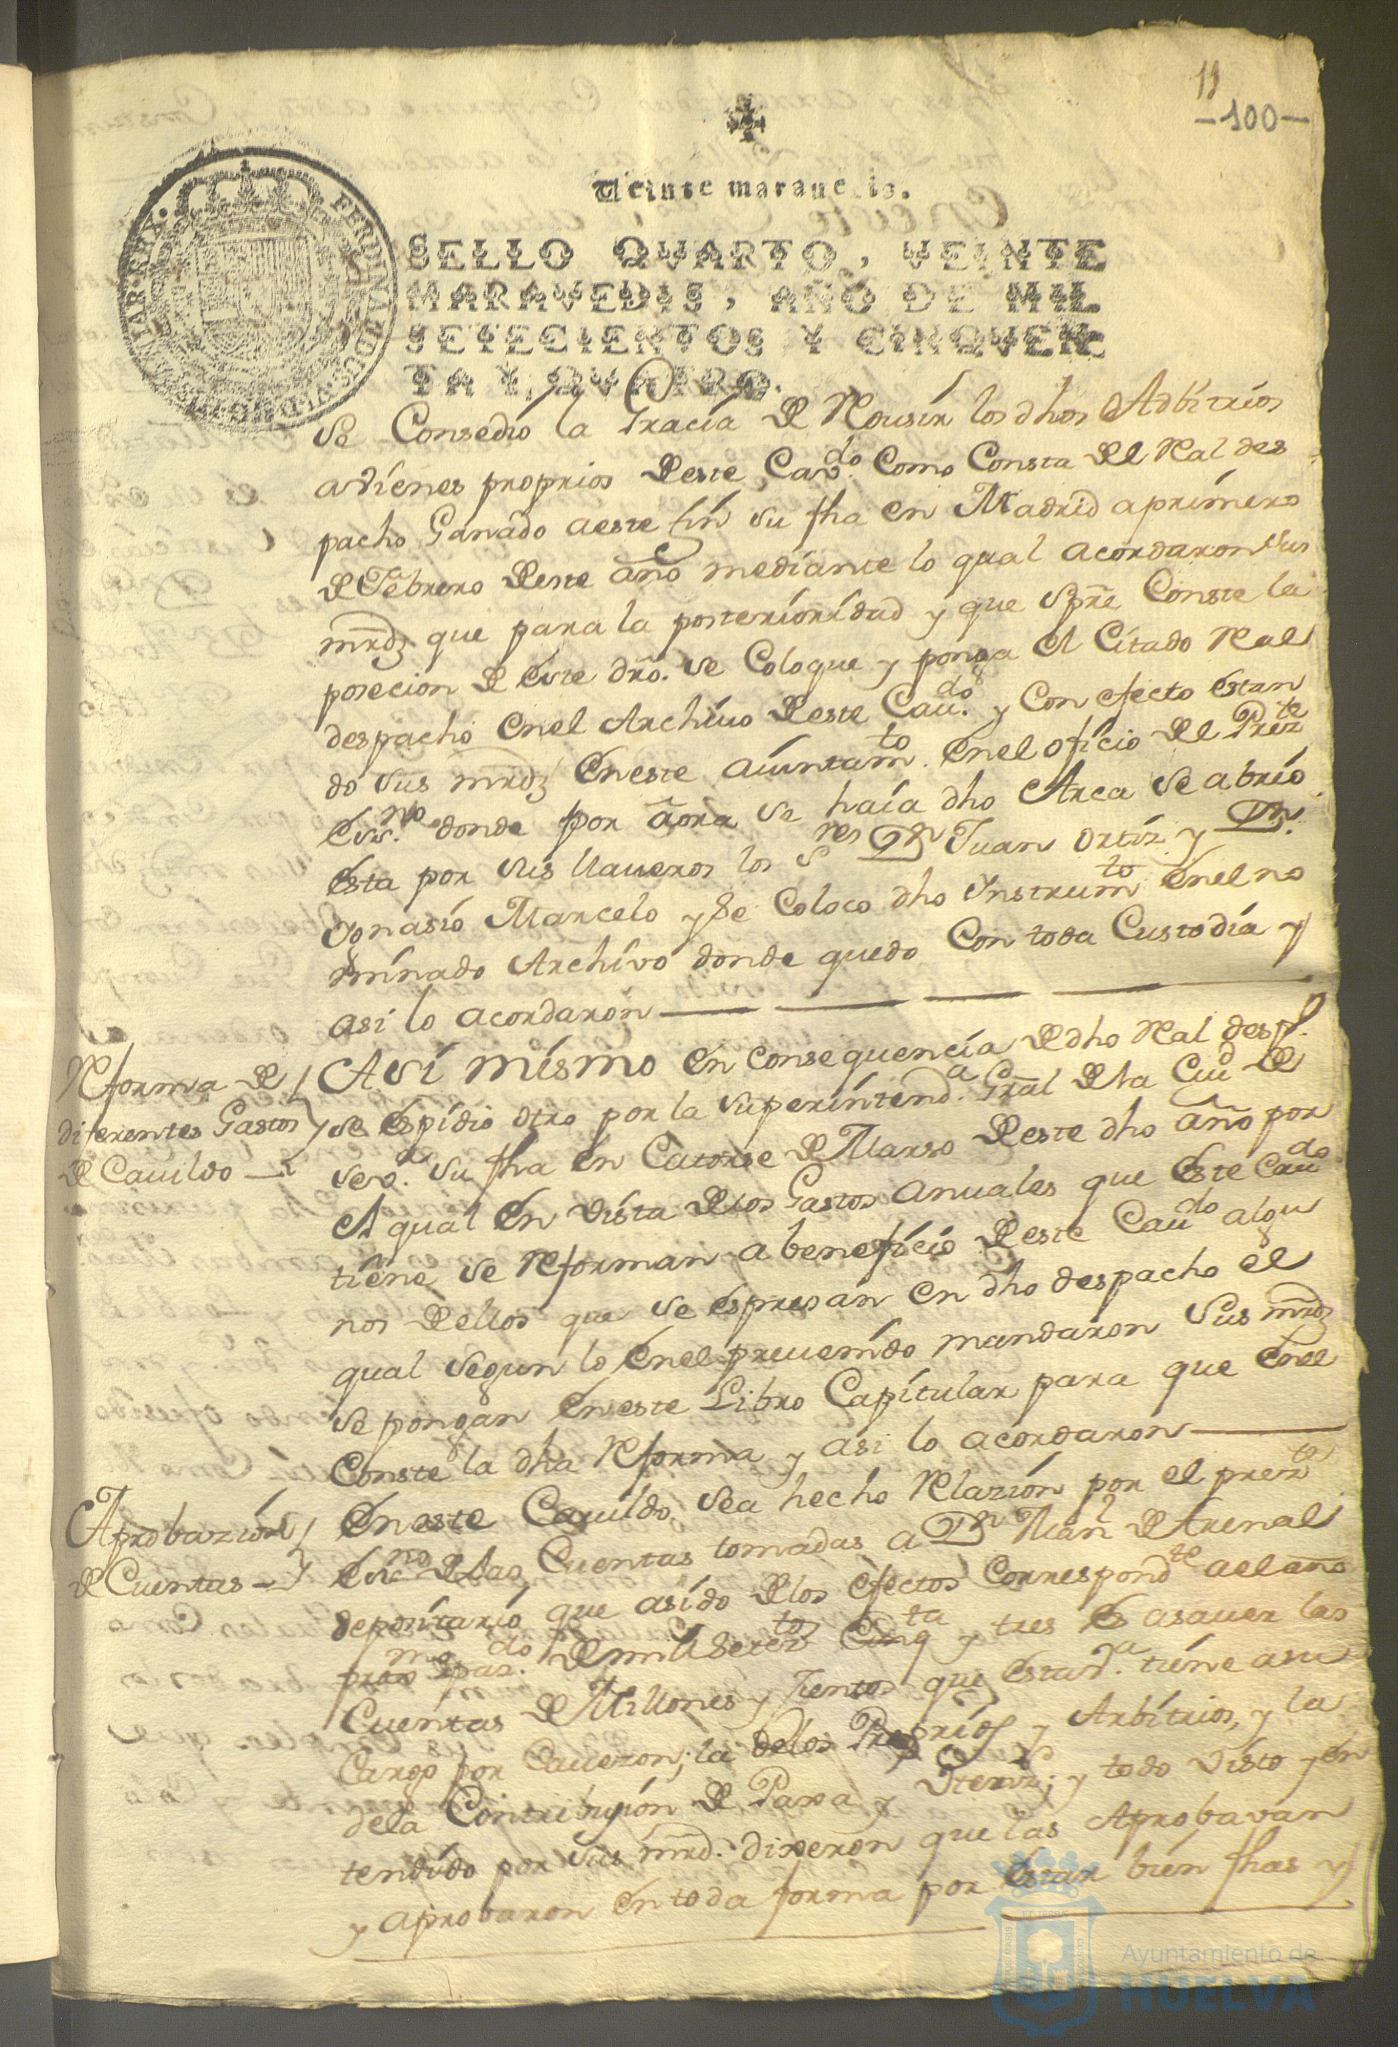 11
-100-
Veinte maravedis.
SELLO QVARTO, VEINTE
MARAVEDIS, AÑO DE MIL
SETECIENTOS Y CINQVEN
TA Y QVATRO.
FERDINANDUS VI D G HISPANIAR REX
se Consedio la Gracia de Reusir los dhos Advitrios
a vienes proprios deste Cavdo. Como Consta del Real des
pacho Ganado a este fin su fha en Madrid a primero
de Febrero deste año mediante lo qual acordaron sus
mrdz que para la posterioridad y que spre Conste la
posecion de este dro. se Coloque y ponga el Citado Real
despacho enel Archivo deste Caudo. y con efecto estan
do sus mrdz en este aiuntamto. enel oficio del Prezte
essno. donde por aora se haia dho Arca se abrio
esta por sus llaueros los Sres Dn Juan Ortiz y Dn.
Ygnasio Marcelo y se coloco dho Ynstrumto enel no
minado Archivo donde quedo Con toda Custodia y
asi lo acordaron
Reforma de
diferentes Gastos
de Cauildo
Asi mismo en consequencia de dho Real desp.
se espidio otro por la superintenda. Gral de la Ciud de
Seva. su fha en Catorse de Marso deste dho año por
el qual en vista de los Gastos anuales que este Caudo
tiene se Reforman a beneficio deste Caudo algu
nos dellos que se espresan en dho despacho el
qual segun lo enel preuenido mandaron sus mrdz
se pongan en este Libro Capitular para que enel
Conste la dha Reforma y asi lo acordaron
Aprobazion
de Cuentas
En este Cauildo, sea hecho Relazion por el prezte
essno de las Cuentas tomadas a Dn Manl de Arenal
depositario que asido de los efectos Correspondte ael año
prox mo pasdo. de mil seteztos Cinqta y tres es asauer las
Cuentas de Millones y Zientos que esta Va. tiene asu
Cargo por Cauezon; la de los Proprios y Arbitrios, y la
de la Contribusion de Paxa y Utenz; y todo visto y en
tendido por sus mrd. dixeron que las Aprobavan
y aprobaron en toda forma por estar bien fhas y
Ayuntamiento de
HUELVA